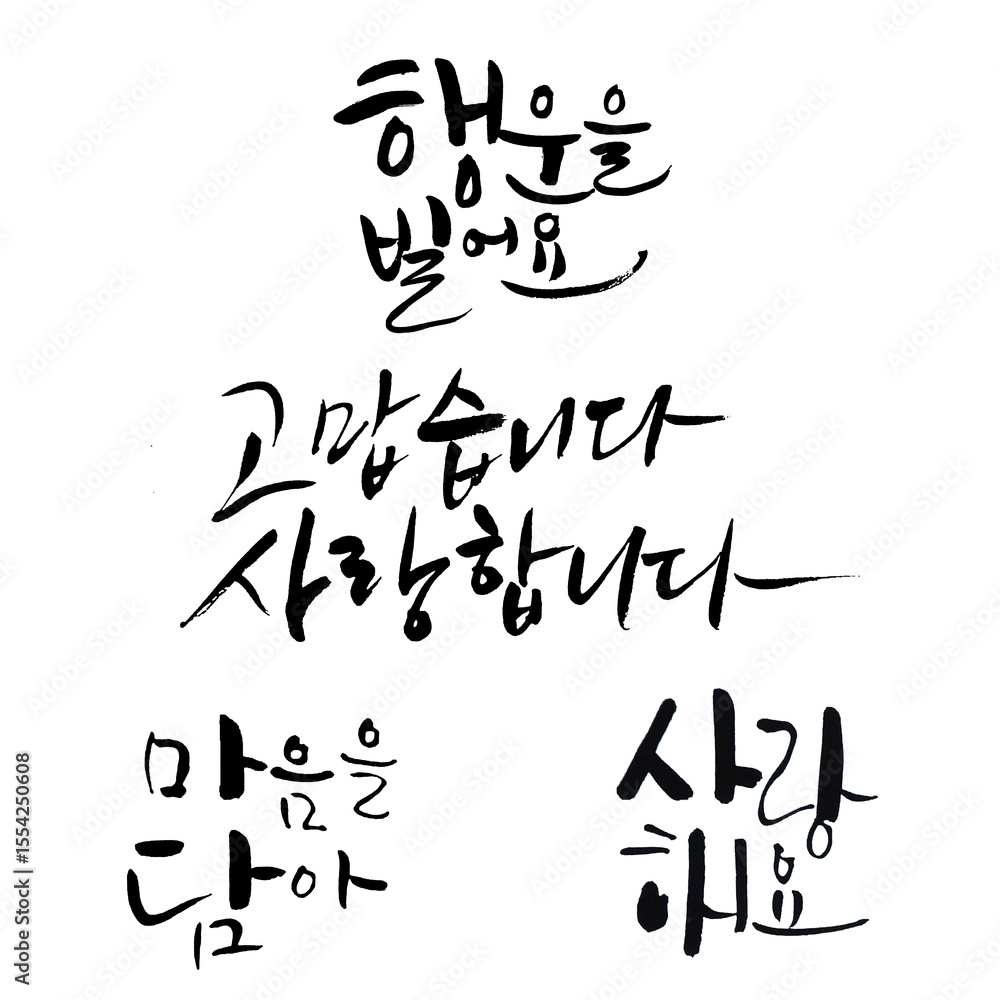 행운을
빌어요
고맙습니다
사랑합니다
마음을
담아
사랑
해요
Adobe Stock | #1554250608